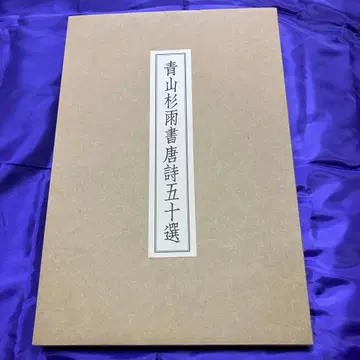 青山杉雨書唐詩五十選